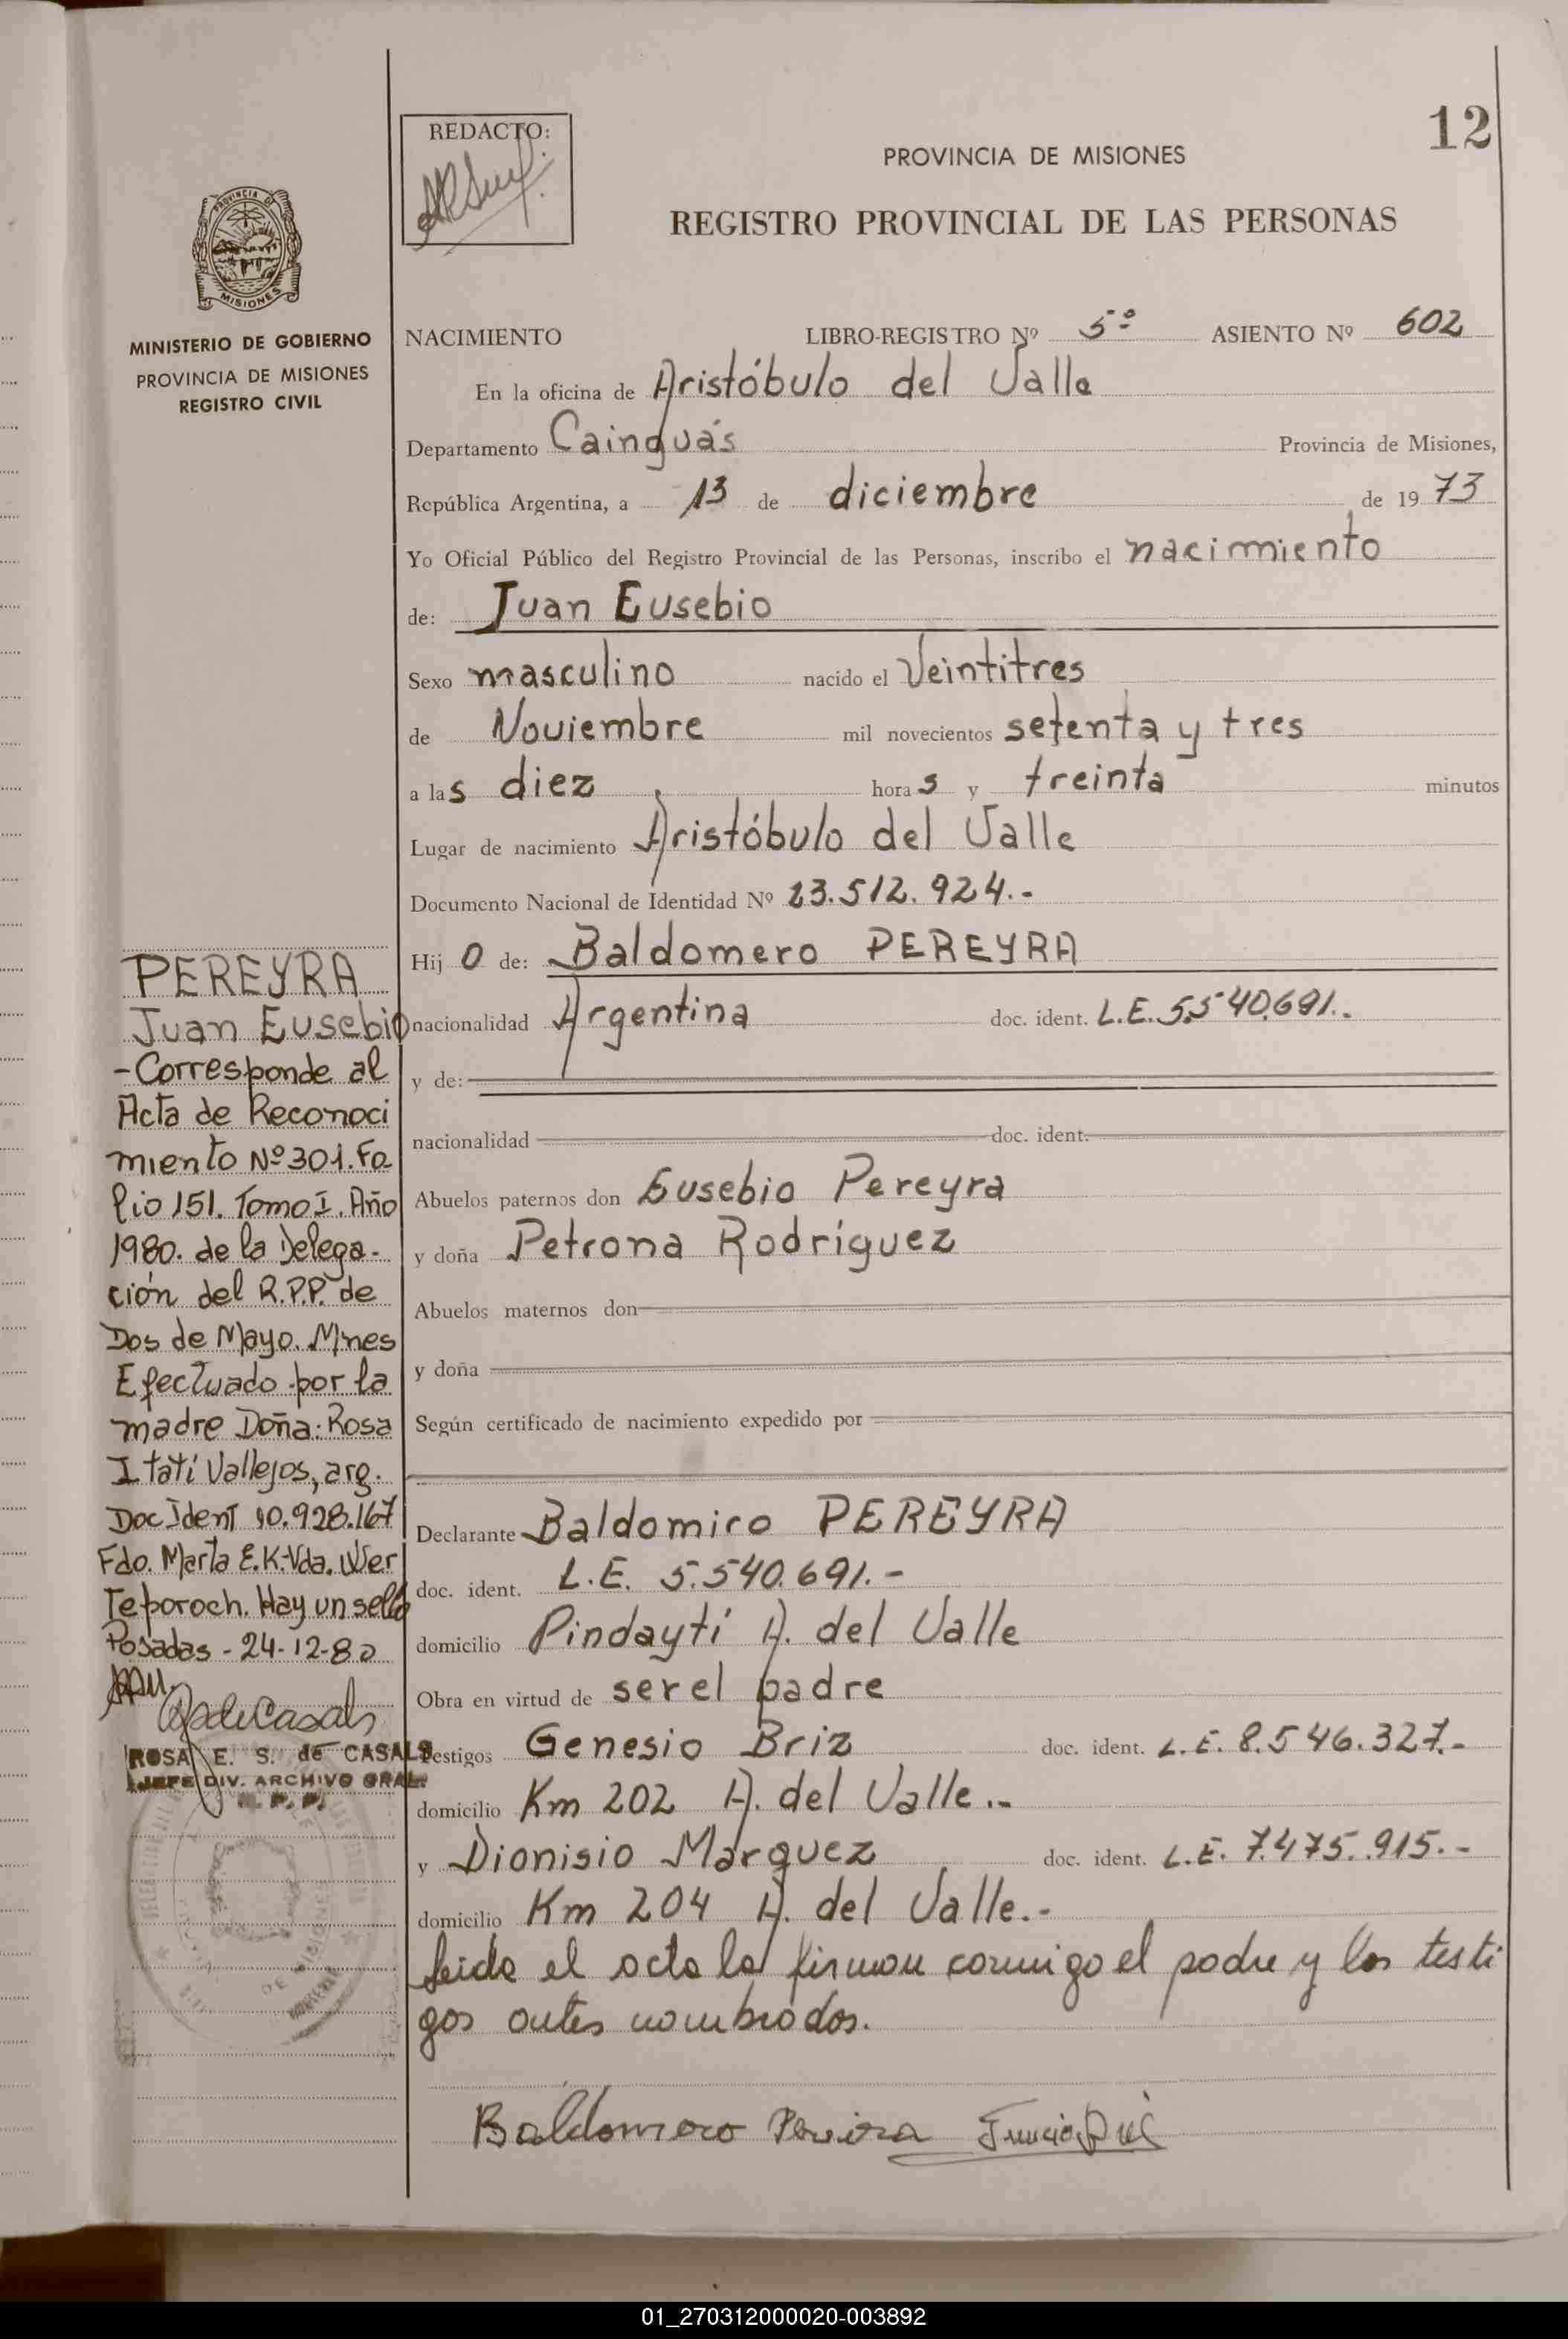 12
REDACTO:
PROVINCIA DE MISIONES
REGISTRO PROVINCIAL DE LAS PERSONAS
PROVINCIA DE
MISIONES
MINISTERIO DE GOBIERNO
PROVINCIA DE MISIONES
REGISTRO CIVIL
NACIMIENTO LIBRO-REGISTRO Nº 5º ASIENTO Nº 602
En la oficina de Aristóbulo del Valle
Departamento Cainguás Provincia de Misiones,
República Argentina, a 13 de diciembre de 1973
Yo Oficial Público del Registro Provincial de las Personas, inscribo el nacimiento
de: Juan Eusebio
Sexo masculino nacido el Veintitres
de Noviembre mil novecientos setenta y tres
a las diez horas y treinta minutos
Lugar de nacimiento Aristóbulo del Valle
Documento Nacional de Identidad Nº 23.512.924.-
Hijo de: Baldomero PEREYRA
nacionalidad Argentina doc. ident. L.E. 5.540.691.-
y de:
nacionalidad doc. ident.
Abuelos paternos don Eusebio Pereyra
y doña Petrona Rodríguez
Abuelos maternos don
y doña
Según certificado de nacimiento expedido por
Declarante Baldomiro PEREYRA
doc. ident. L.E. 5.540.691.-
domicilio Pindaytí A. del Valle
Obra en virtud de ser el padre
Testigos Genesio Briz doc. ident. L.E. 8.546.327.-
domicilio Km 202 A. del Valle.-
y Dionisio Márquez doc. ident. L.E. 7.475.915.-
domicilio Km 204 A. del Valle.-
Leida el acta la firman conmigo el padre y los testi
gos antes nombrados.
Baldomero Pereira
PEREYRA
Juan Eusebio
-Corresponde al
Acta de Reconoci
miento Nº 301. Fo-
lio 151. Tomo I. Año
1980. de la Delega-
ción del R.P.P. de
Dos de Mayo. Mnes
Efectuado por la
madre Doña: Rosa
Itatí Vallejos, arg.
Doc Ident 10.928.167
Fdo. Marta E.K. Vda. Wer
Teporoch. Hay un sello
Posadas - 24-12-80
ROSA E. S. de CASALS
JEFE DIV. ARCHIVO GRAL.
R. P. P.
DE MISIONES
01_270312000020-003892